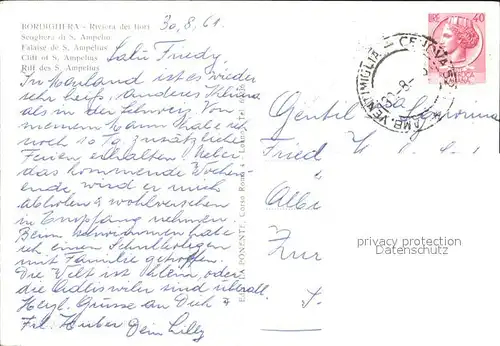 BORDIGHERA - Riviera dei fiori
Scogliera di S. Ampelio
Falaise de S. Ampelius
Cliff of S. Ampelius
Riff des S. Ampelius
30.8.61.
Salü Friedy,
In Mailand ist es wieder
sehr heiss, anderes Klima
als in der Schweiz. Von
meinem Mann habe ich
noch 10 Tg. zusätzliche
Ferien erhalten! Ueber
das kommende Wochen-
ende wird er mich
abholen & wohlversehen
in Empfang nehmen.
Beim Schwimmen habe
ich einen Schulkollegen
mit Familie getroffen.
Die Welt ist klein, oder
die Adliswiler sind überall.
Herzl. Grüsse an Dich &
Frl. Huber Dein Lilly
PONENTE, Corso Roma
LIRE 40
GENOVA
AMB. VENTIMIGLIA
Gentil
Fried
Zür
privacy protection
Datenschutz